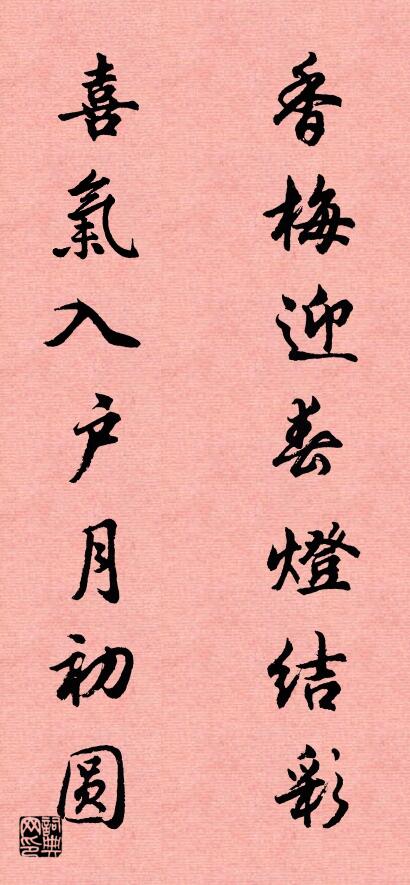 香梅迎春燈结彩
喜氣入户月初圆